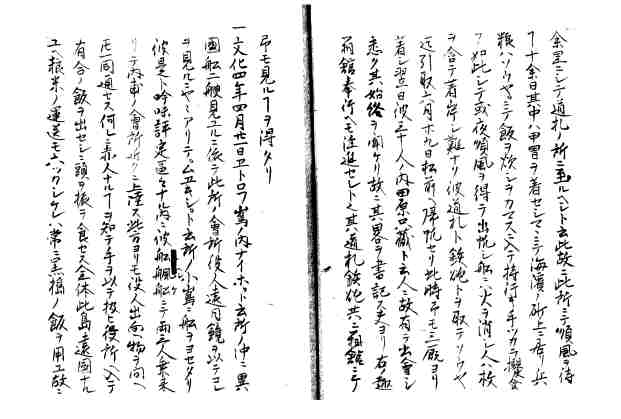 余里ニシテ通礼ノ所ニ至ルヘシト云此故ニ此所ニテ順風ヲ待
ヿ十余日其中ハ甲冑ヲ着セシマヽニテ海濱ノ砂上ニ居リ兵
粮ハソウヤニテ飯ヲ炊シヲカマスニ入テ持行キ手ツカラ
ヿ如此シテ或夜順風ヲ得テ出帆シ船ニ火ヲ消シ人ハ枚
ヲ合テ着岸シ難ナク彼通礼ト鉄炮トヲ取テソウヤ
迄引取六月廿九日松前ヘ帰帆セリ此時弔モ三厩ヨリ
着シ翌日彼三十人ノ内田原口蔵ト云人ニ故有テ出會シ
悉ク其始終ヲ聞ケリ故ニ其畧ヲ書記ス夫ヨリ右ノ趣
箱館奉行ヘモ注進セントテ其通礼鉄炮共ニ箱館ニテ
弔モ見ルヿヲ得タリ
一文化四年四月廿一日ヱトロフ嶌ノ内ナイホト云所ノ沖ニ異
国船二艘見エルニ依テ此所ノ會所役人遠目鏡ヲ以テコレ
ヲ見ルニ アリテ ト云所ノ小嶌ニ船ヲヨセタリ
彼是ト吟味評定區々ナル内ニ彼船 船ニテ両三人乗来
リテ内甫ノ會所近クニ上陸ス此方ヨリモ役人出向ヘ物ヲ問ヘ
圧一同通セス何レ赤人ナルヿヲ知テ手ヲ以テ 役所ヘ入テ
有合ノ飯ヲ出セシニ頭ヲ振テ食セス全体此島ハ遠国ナル
ユヘ粮米ノ運送モムツ シケレハ 黒 ノ飯ヲ用ユ故ニ